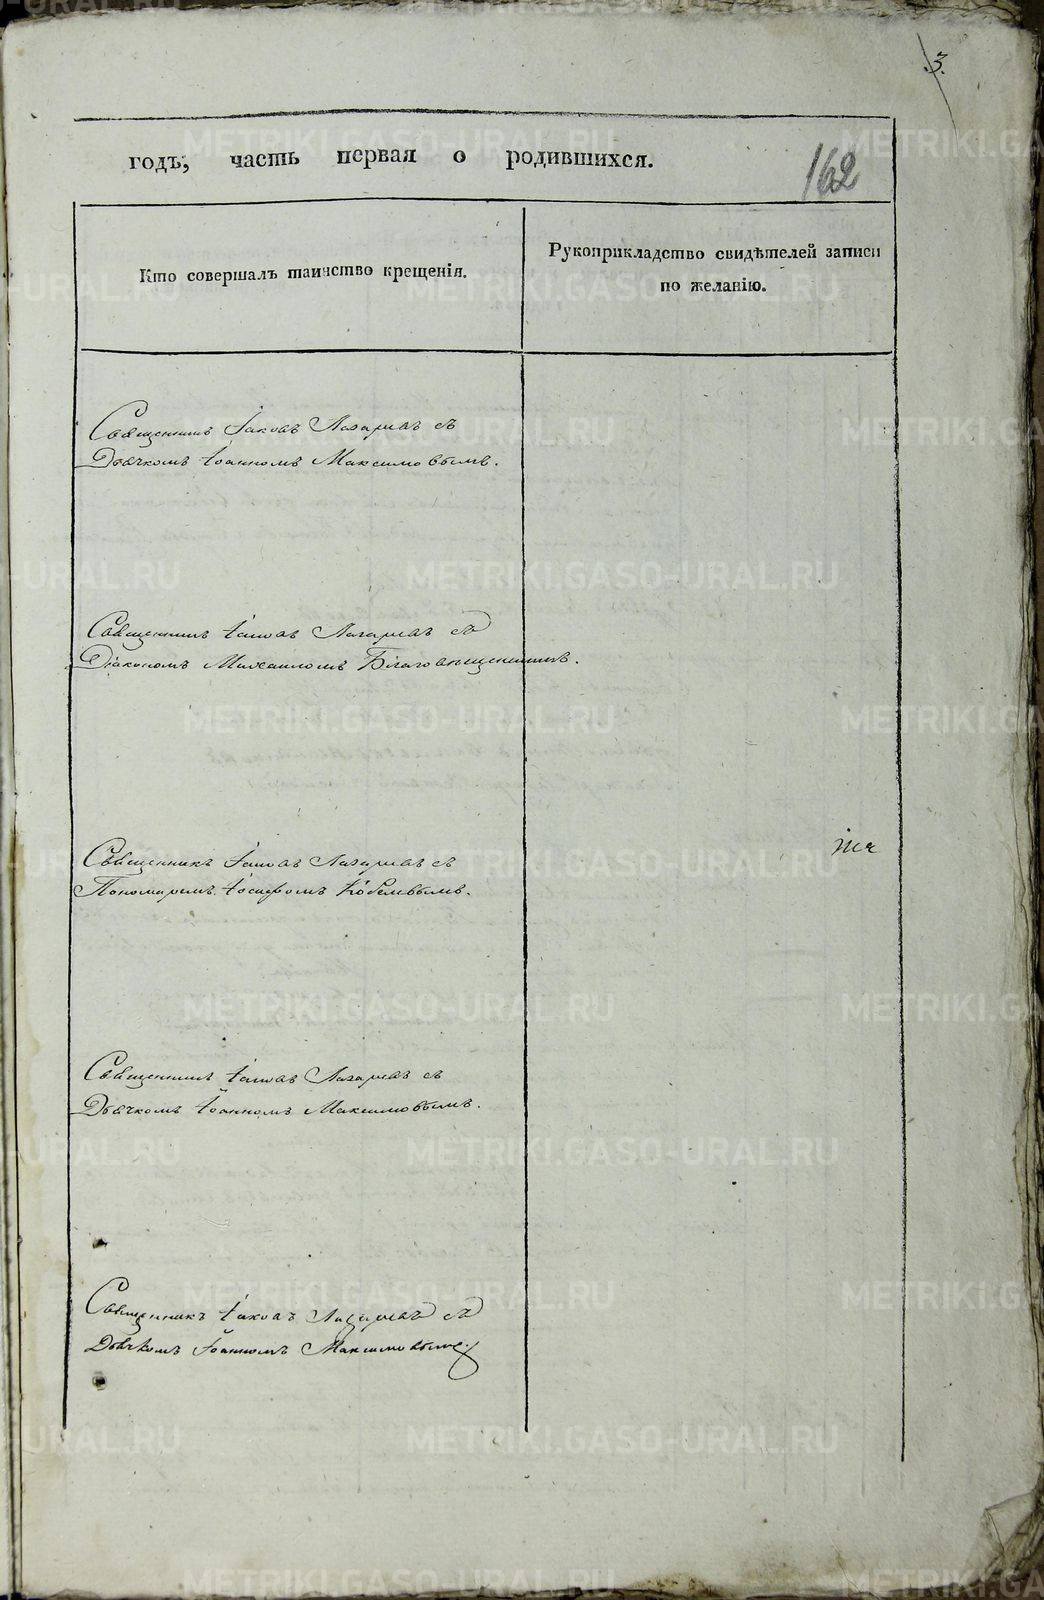 3.
годъ, часть первая о родившихся.
162
Кто совершалъ таинство крещенія.
Рукоприкладство свидѣтелей записи
по желанію.
Священникъ Іаковъ Лазаревъ съ
Дьячкомъ Іоанномъ Максимовымъ.
Священникъ Іаковъ Лазаревъ съ
Діакономъ Михаиломъ Благовещенскимъ.
Священникъ Іаковъ Лазаревъ съ
Пономаремъ Іосифомъ
Священникъ Іаковъ Лазаревъ съ
Дьячкомъ Іоанномъ Максимовымъ.
Священникъ Іаковъ Лазаревъ съ
Дьячкомъ Іоанномъ Максимовымъ.
METRIKI.GASO-URAL.RU